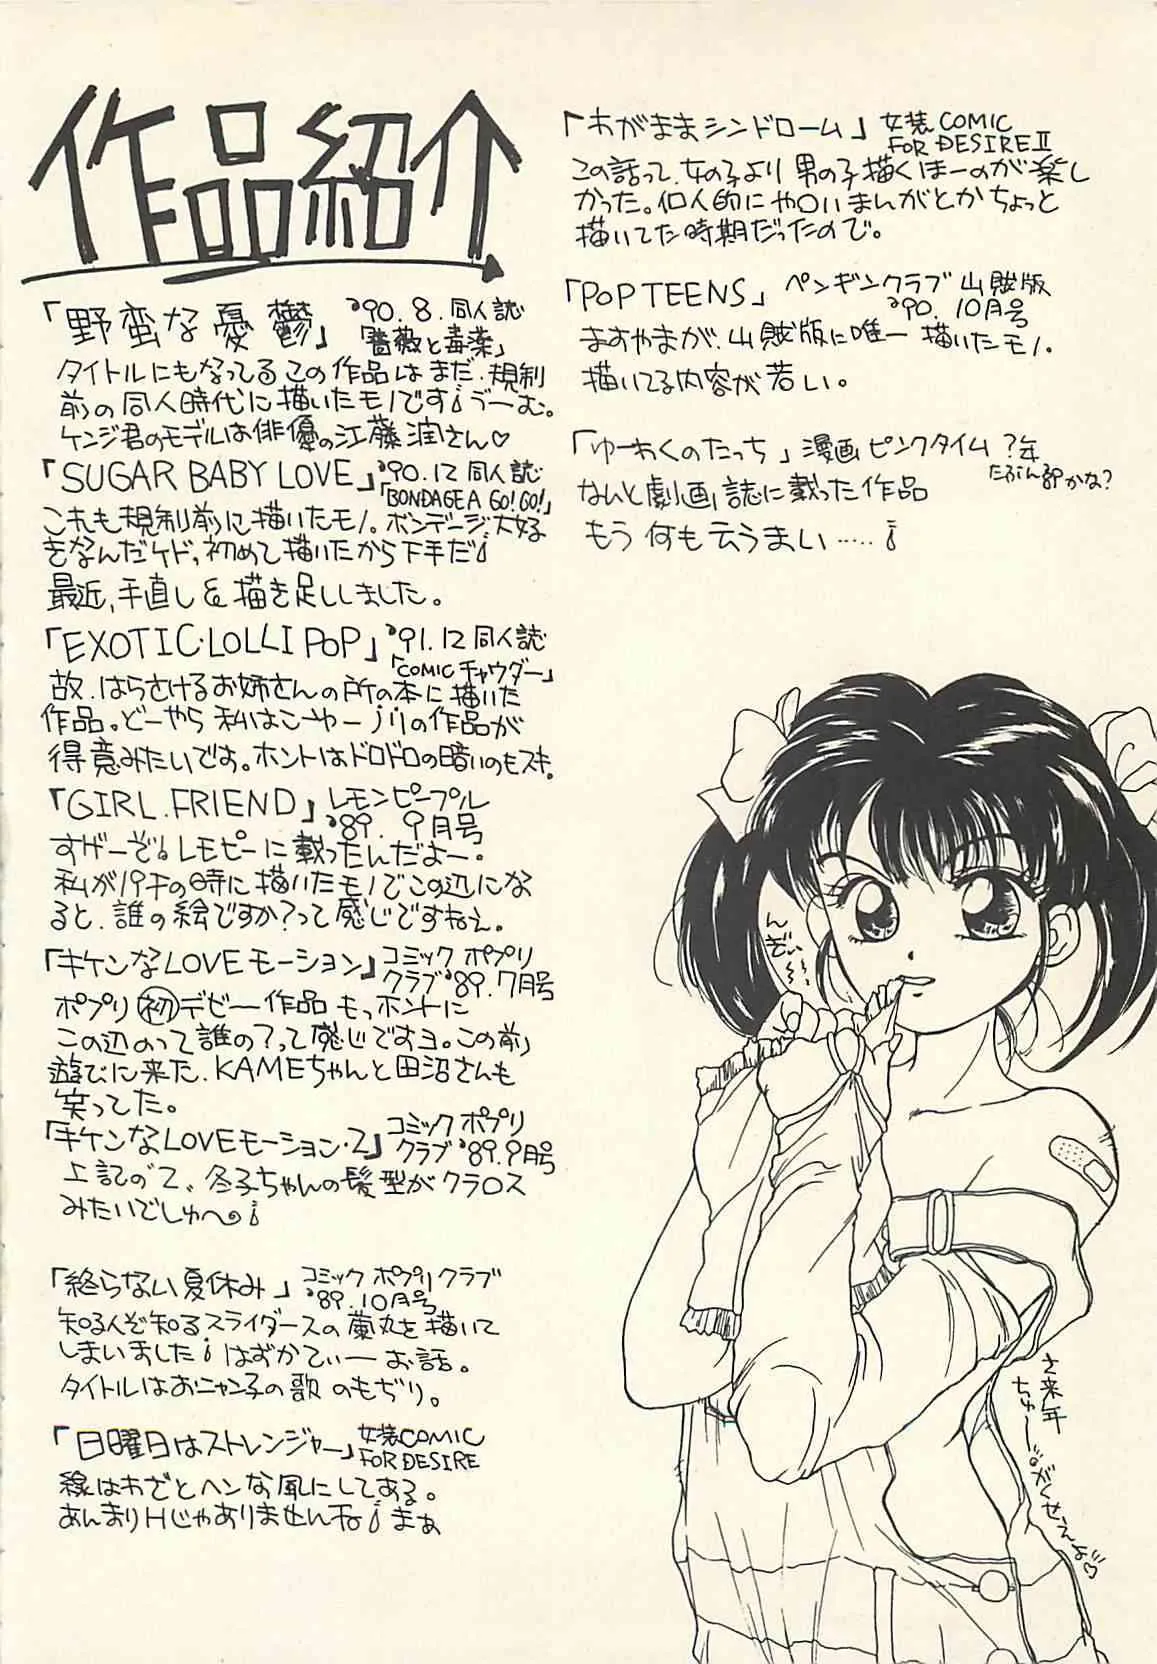 作品紹介
「野蛮な憂鬱」'90.8.同人誌
「薔薇と毒薬」
タイトルにもなってるこの作品はまだ、規制
前の同人時代に描いたモノです!うーむ。
ケンジ君のモデルは俳優の江藤潤さん♡
「SUGAR BABY LOVE」'90.12 同人誌
「BONDAGE A GO!GO!」
これも規制前に描いたモノ。ボンデージ大好
きなんだケド、初めて描いたから下手だ!
最近、手直し&描き足ししました。
「EXOTIC・LOLLI POP」'91.12 同人誌
「COMIC チャウダー」
故.はらざけるお姉さんの所の本に描いた
作品。どーやら私はこーゆーノリの作品が
得意みたいです。ホントはドロドロの暗いのもスキ。
「GIRL.FRIEND」レモンピープル
'89. 9月号
すげーぞ!レモピーに載ったんだよー。
私がパチの時に描いたモノでこの辺にな
ると、誰の絵ですか?って感じですねえ。
「キケンなLOVEモーション」コミック ポプリ
クラブ'89.7月号
ポプリ初デビー作品 もっホントに
この辺のって誰の?って感じですヨ。この前
遊びに来た、KAMEちゃんと田沼さんも
笑ってた。
「キケンなLOVEモーション・2」コミック ポプリ
クラブ'89.9月号
上記の2、冬子ちゃんの髪型がクラロス
みたいでしゅ〜!
「終らない夏休み」コミック ポプリクラブ
'89.10月号
知る人ぞ知るスライダースの蘭丸を描いて
しまいました!はずかてぃーお話。
タイトルはおニャン子の歌のもぢり。
「日曜日はストレンジャー」女装COMIC
FOR DESIRE
線はわざとヘンな風にしてある。
あんまりHじゃありませんね!まぁ
「わがままシンドローム」女装COMIC
FOR DESIRE II
この話って、女の子より男の子描くほーのが楽し
かった。個人的にや○いまんがとかちょっと
描いてた時期だったので。
「POP TEENS」ペンギンクラブ山賊版
'90.10月号
ますやまが、山賊版に唯一描いたモノ。
描いてる内容が若い。
「ゆーわくのたっち」漫画ピンクタイム ?年
たぶん'89かな?
なんと劇画誌に載った作品
もう何も云うまい……!
んぞぃ〜〜
さ来年
ちゅー
がくせえよ♡